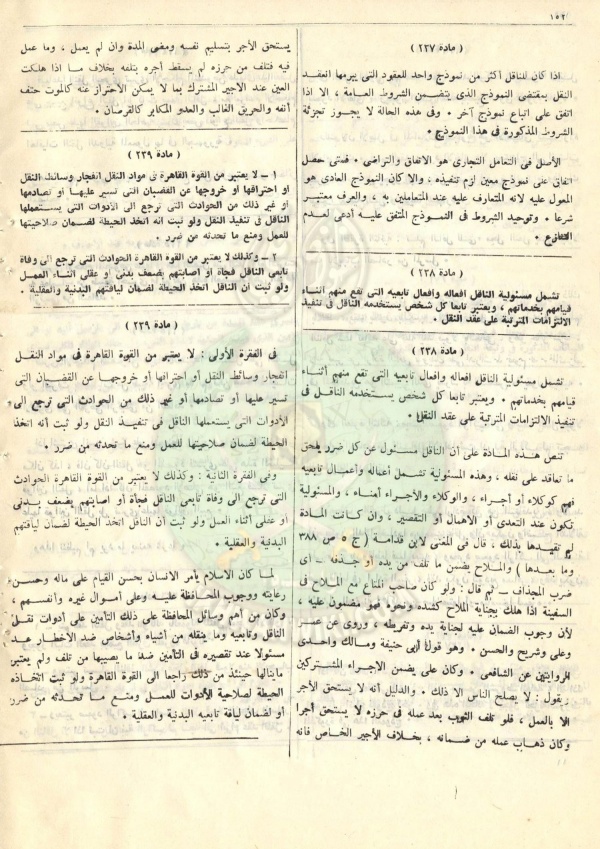 ١٥٢
( مادة ٢٣٧ )
اذا كان للناقل أكثر من نموذج واحد للعقود التى يبرمها انعقد
النقل بمقتضى النموذج الذى يتضمن الشروط العامة ، الا اذا
اتفق على اتباع نموذج آخر ، وفى هذه الحالة لا يجوز تجزئة
الشروط المذكورة فى هذا النموذج ٠
الأصل فى التعامل التجارى هو الاتفاق والتراضى ، فمتى حصل
اتفاق على نموذج معين لزم تنفيذه ، والا كان النموذج العادى هو
المعول عليه لانه المتعارف عليه عند المتعاملين به ، والعرف معتبر
شرعا ، وتوحيد الشروط فى النموذج المتفق عليه أدعى لعدم
التنازع ٠
( مادة ٢٣٨ )
تشمل مسئولية الناقل افعاله وافعال تابعيه التى تقع منهم اثناء
قيامهم بخدماتهم ، ويعتبر تابعا كل شخص يستخدمه الناقل فى تنفيذ
الالتزامات المترتبة على عقد النقل ٠
( مادة ٢٣٨ )
تشمل مسئولية الناقل أفعاله وافعال تابعيه التى تقع منهم أثناء
قيامهم بخدماتهم ٠ ويعتبر تابعا كل شخص يستخدمه الناقل فى
تنفيذ الالتزامات المترتبة على عقد النقل ٠
تنص هذه المادة على أن الناقل مسئول عن كل ضرر يلحق
ما تعاقد على نقله ، وهذه المسئولية تشمل أعماله وأعمال تابعيه
فهم كوكلاء أو أجراء ، والوكلاء والأجراء أمناء ، والمسئولية
تكون عند التعدى أو الاهمال أو التقصير ، وان كانت المادة
لم تقيدها بذلك ، قال فى المغنى لابن قدامة ( ج ٥ ص ٣٨٨
وما بعدها ) والملاح يضمن ما تلف من يده أو جذفه – أى
ضرب المجذاف – ثم قال : ولو كان صاحب المتاع مع الملاح فى
السفينة اذا هلك بجناية الملاح كشده ونحوه فهو مضمون عليه ،
لأن وجوب الضمان عليه لجناية يده وتفريطه ، وروى عن عمر
وعلى وشريح والحسن ٠ وهو قول أبى حنيفة ومالك واحدى
الروايتين عن الشافعى ٠ وكان على يضمن الاجراء المشتركين
ويقول : لا يصلح الناس الا ذلك ٠ والدليل أنه لا يستحق الأجر
الا بالعمل ، فلو تلف الثوب بعد عمله فى حرزه لا يستحق أجرا
وكان ذهاب عمله من ضمانه ، بخلاف الأجير الخاص فانه
يستحق الأجر بتسليم نفسه ومضى المدة وان لم يعمل ، وما عمل
فيه فتلف من حرزه لم يسقط أجره بتلفه بخلاف ما اذا هلكت
العين عند الأجير المشترك بما لا يمكن الاحتراز عنه كالموت حتف
أنفه والحريق الغالب والعدو المكابر كالقرصان ٠
( مادة ٢٣٩ )
١ – لا يعتبر من القوة القاهرة فى مواد النقل انفجار وسائط النقل
او احتراقها او خروجها عن القضبان التى تسير عليها او تصادمها
او غير ذلك من الحوادث التى ترجع الى الأدوات التى يستعملها
الناقل فى تنفيذ النقل ولو ثبت انه اتخذ الحيطة لضمان صلاحيتها
للعمل ومنع ما تحدثه من ضرر ٠
٢ – وكذلك لا يعتبر من القوة القاهرة الحوادث التى ترجع الى وفاة
تابعى الناقل فجأة أو اصابتهم بضعف بدنى أو عقلى اثناء العمل
ولو ثبت أن الناقل اتخذ الحيطة لضمان لياقتهم البدنية والعقلية ٠
( مادة ٢٣٩ )
فى الفقرة الأولى : لا يعتبر من القوة القاهرة فى مواد النقل
انفجار وسائط النقل أو احتراقها أو خروجها عن القضبان التى
تسير عليها أو تصادمها أو غير ذلك من الحوادث التى ترجع الى
الأدوات التى يستعملها الناقل فى تنفيذ النقل ولو ثبت أنه اتخذ
الحيطة لضمان صلاحيتها للعمل ومنع ما تحدثه من ضرر ٠
وفى الفقرة الثانية : وكذلك لا يعتبر من القوة القاهرة الحوادث
التى ترجع الى وفاة تابعى الناقل فجأة أو اصابتهم بضعف بدنى
او عقلى أثناء العمل ولو ثبت أن الناقل اتخذ الحيطة لضمان لياقتهم
البدنية والعقلية ٠
لما كان الاسلام يأمر الانسان بحسن القيام على ماله وحسن
رعايته ووجوب المحافظة عليه وعلى أموال غيره وأنفسهم ،
وكان من أهم وسائل المحافظة على ذلك التأمين على أدوات نقل
الناقل وتابعيه وما ينقله من أشياء وأشخاص ضد الاخطار عد
مسئولا عند تقصيره فى التأمين ضد ما يصيبها من تلف ولم يعتبر
ماينالها حينئذ من ذلك راجعا الى القوة القاهرة ولو ثبت اتخاذه
الحيطة لصلاحية الأدوات للعمل ومنع ما تحدثه من ضرر
أو لضمان لياقة تابعيه البدنية والعقلية ٠